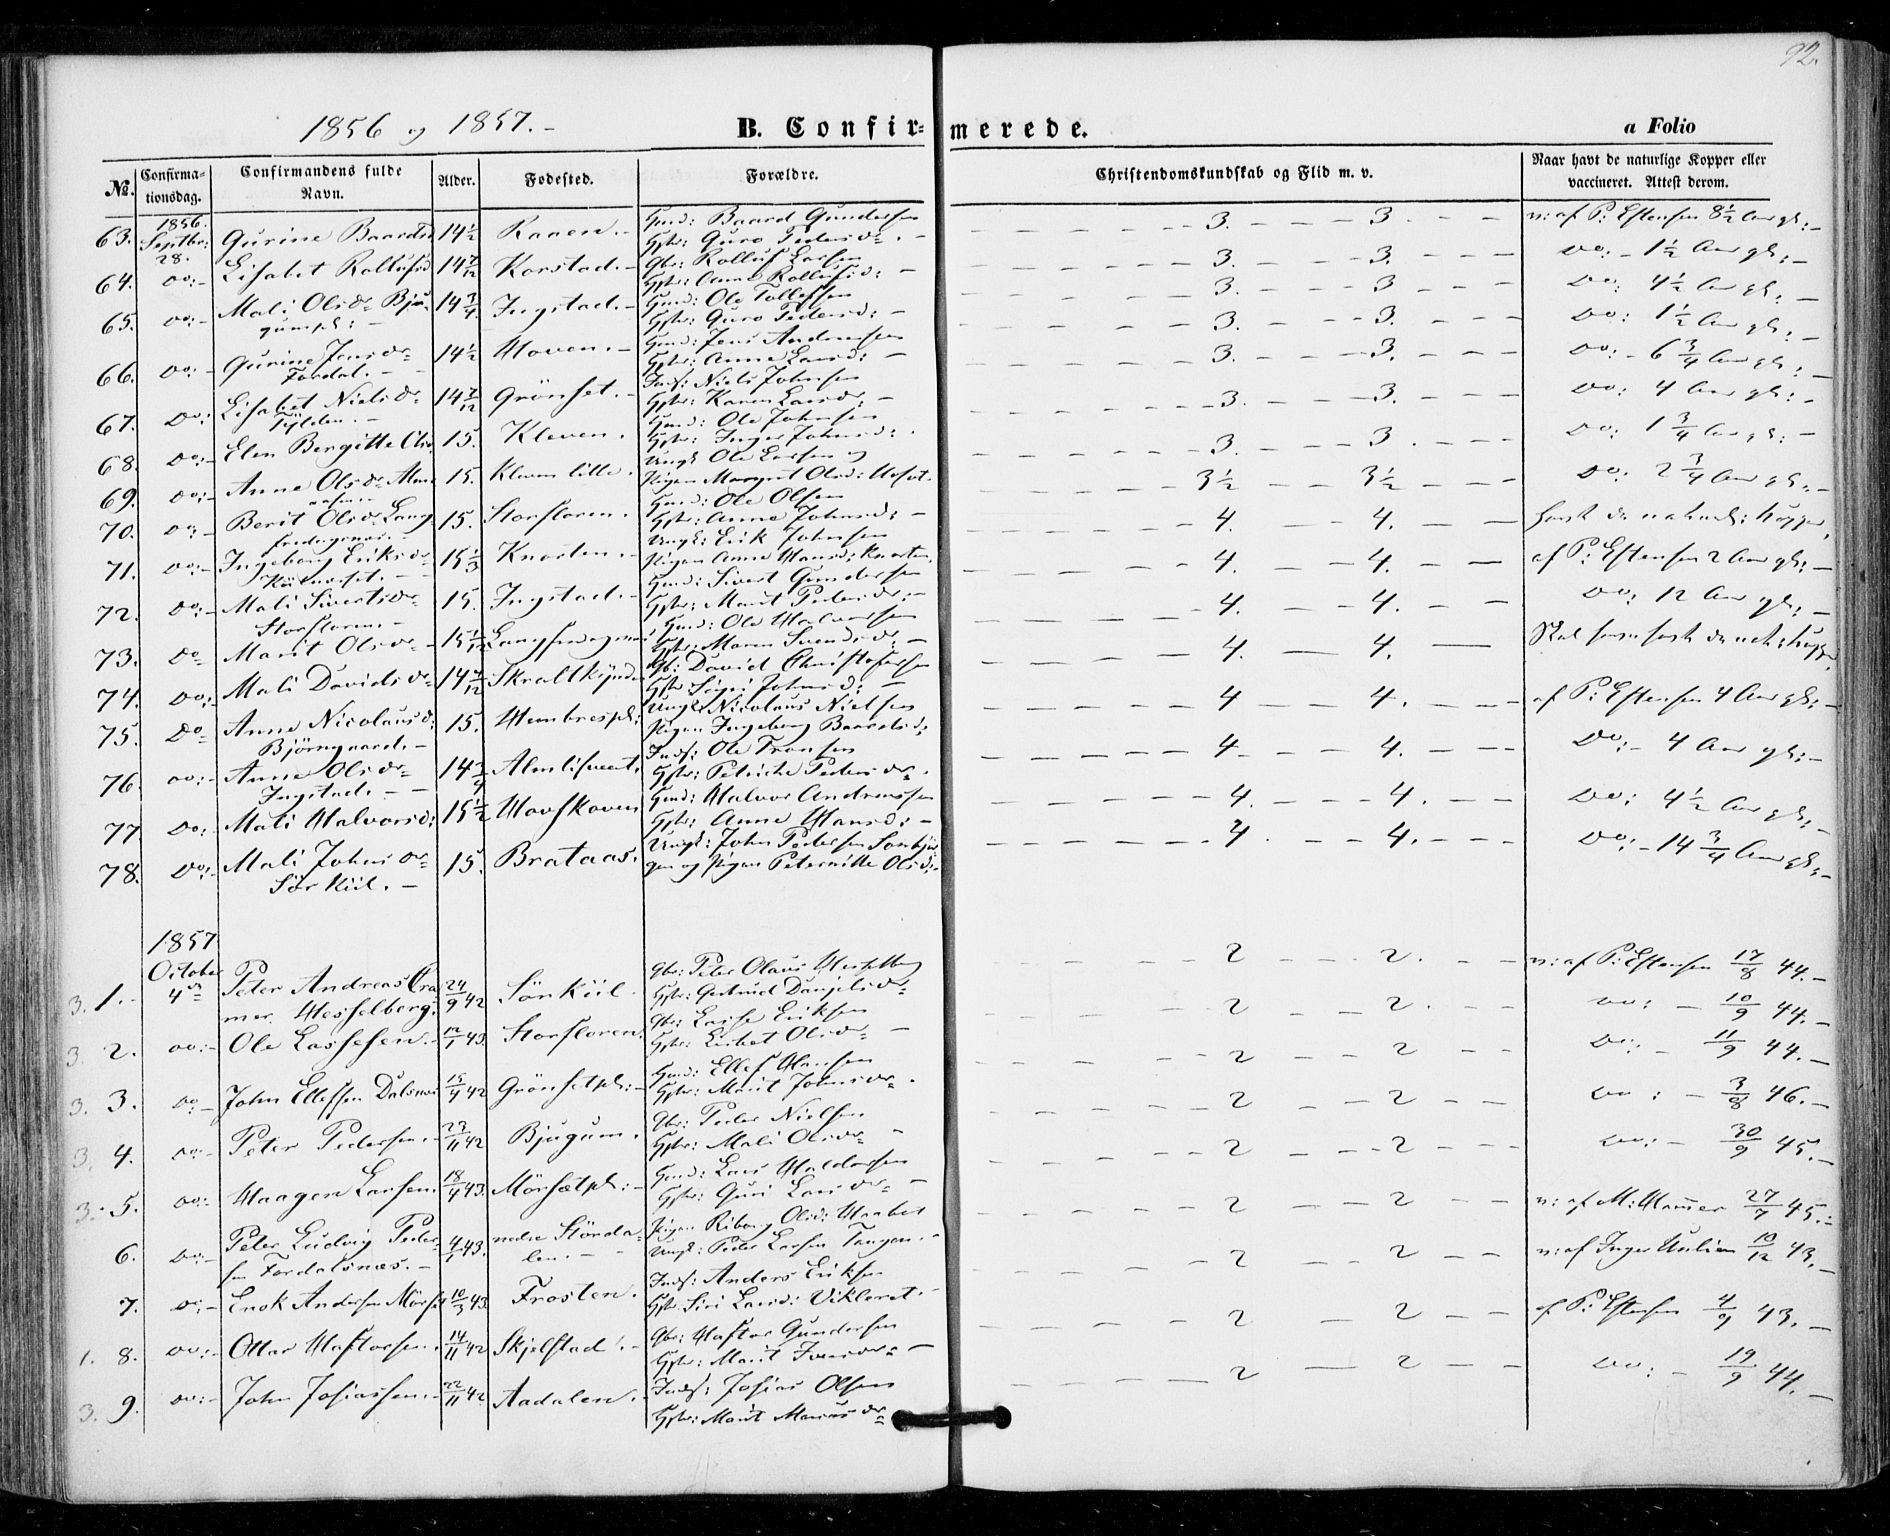 92.
1856 og 1857.-
B. Confirmerede.
a Folio
No. Confirmationsdag. Confirmandens fulde Navn. Alder. Fødested. Forældre. Christendomskundskab og Flid m. v. Naar havt de naturlige Kopper eller vaccineret. Attest derom.
1856. Gmd: Baard Gundersen
63. Septbr: 28. Gurine Baardsd 14 1/2 Raaen. Hstr: Guro Pedersdr. 3. 3. v: af P: Estensen 8 1/2 Aar gl:
64. do: Lisabet Rollufsd 14 7/12 Korstad. Gbr: Rolluf Larsen
Hstr: Anne Rollufsd: 3. 3. Do: 1 1/2 Aar gl:
65. do: Mali Olsdr Bjugumpl: 14 3/4 Ingstad. Gmd: Ole Tollefsen
Hstr: Guro Pedersd: 3. 3 Do: 4 1/2 Aar gl:
66. do: Gurine Jensdr Fordal. 14 1/2 Moven. Gmd: Jens Andersen
Hstr: Anne Larsd: 3. 3. Do: 1 1/2 Aar gl:
67. Do: Lisabet Nielsdr Tylden. 14 7/12 Grönset. Inds: Niels Johnsen
Hstr: Karen Larsdr: 3. 3. Do: 6 3/4 Aar gl:
68. Do: Elen Bergitte Olsd 15. Kleven. Gmd: Ole Johnsen
Hstr: Inger Johnsd: 3. 3. Do: 4 Aar gl:
69. do: Anne Olsdr 15. Kleven lille. Ungk: Ole Larsen og
Pigen Margrit Olsd: 3. 3. Do: 1 3/4 Aar gl:
70. do: Berit Olsdr 15. Storfloren. Gmd: Ole Olsen
Hstr: Anne Johnsd: 3 1/2 3 1/2 Do: 2 3/4 Aar gl:
71. do: Ingeborg Eriksdr 15 1/3 Knoten. Ungk: Erik Johnsen
Pigen Anne Hansd: 4. 4. havt de naturl: Kopper,
72. Do: Mali Sivertsdr Storfloren. 15. Ingstad. Gmd: Sivert Gundersen
Hstr: Marit Pedersdr: 4. 4. af P: Estensen 2 Aar gl:
73. Do Marit Olsdr 15 1/12 Gmd: Ole Halvorsen
Hstr: Maren Svendsdr: 4. 4. Do: 12 Aar gl:
74. Do: Mali Davidsdr 14 7/12 Gb: David Christofersen
Hstr Sigri Johnsd: 4. 4. Skal have havt de nat: Kopper,
75. Do Anne Nicolausd: Bjørngaard. 15. Hembrespl: Ungk: Nicolaus Nielsen
Pigen Ingeborg Baardsd: 4 4. af P: Estensen 4 Aar gl:
76. do: Anne Olsdr Ingstad. 14 3/4 Inds: Ole Tronsen
Hstr: Petricke Pedersdr. 4 4. Do: 4 Aar gl:
77. Do: Mali Halvorsd: 15 1/2 Hovskoven Gmd: Halvor Andreassen
Hstr: Anne Hansd: 4. 4. Do: 4 1/2 Aar gl:
78. Do: Mali Johnsdr Sörkiil. 15. Brataas. Ungk: John Pedersen
og Pigen Peternille Olsd: 4. 4. Do: 14 3/4 Aar gl:
1857
3. 1. October 4de Peter Andreas Cramer Hesselberg. 24/9 42 Sönkiil. Gbr: Peter Olaus Hesselberg
Hstr: Gertrud Danjelsdr 2 2. v: af P: Estensen 17/8 44.
3. 2. do: Ole Lassesen. 12/1 43. Storfloren. Gbr: Lasse Eriksen
Hstr: Lisbet Olsdr 2 2. do: 10/9 44.
3. 3. do: John Ellefsen Dalsnes 15/9 42 Grönsetpl: Gmd: Ellef Hansen
Hstr: Marit Johnsdr. 2 2 Do: 11/9 44.
3. 4. do: Peter Pedersen. 23/11 42 Bjugum. Gbr: Peder Nielsen
Hstr: Mali Olsdr 2 2 do: 3/8 46.
3. 5. do: Haagen Larsen. 18/4 43. Mörsætpl: Gmd: Lars Haldorsen
Hstr: Guri Larsdr 2 2 do: 30/9 45.
6. do: Peter Ludvig Pedersen Fordalsnæs. 4/1 43. nedre Stördalen. Pigen Riborg Olsd:
Ungk: Peder Larsen Tangen. 2 2 v: af M: Hammer 27/7 45.
7. do: Enok Andersen Mörset 10/3 43. Frosten. Inds: Anders Eriksen
Hstr: Siri Larsd: Vikleret. 2 2 v: af Inger 10/12 43.
1. 8. do: Ottar Haftorsen. 14/11 42 Skjelstad. Gbr: Haftor Gundersen
Hstr: Marit Iversdr 2 2 af P: Estensen 4/9 43.
3. 9. do: John Josiassen. 22/11 42 Aadalen. Inds: Josias Olsen
Hstr: Marit 2 2 do: 19/9 44.